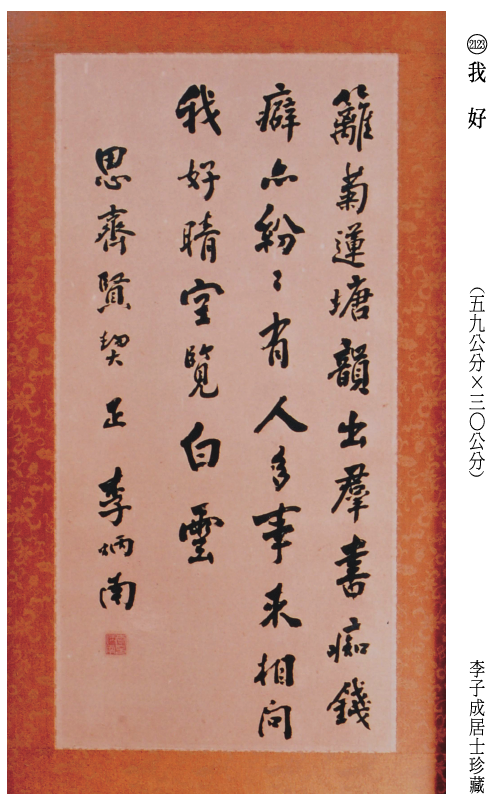 ㉑㉓ 我好
（五九公分×三〇公分）
李子成居士珍藏
籬菊蓮塘韻出羣書痴錢
癖亦紛〻有人多事來相問
我好晴空覽白雲
思齊賢契正 李炳南